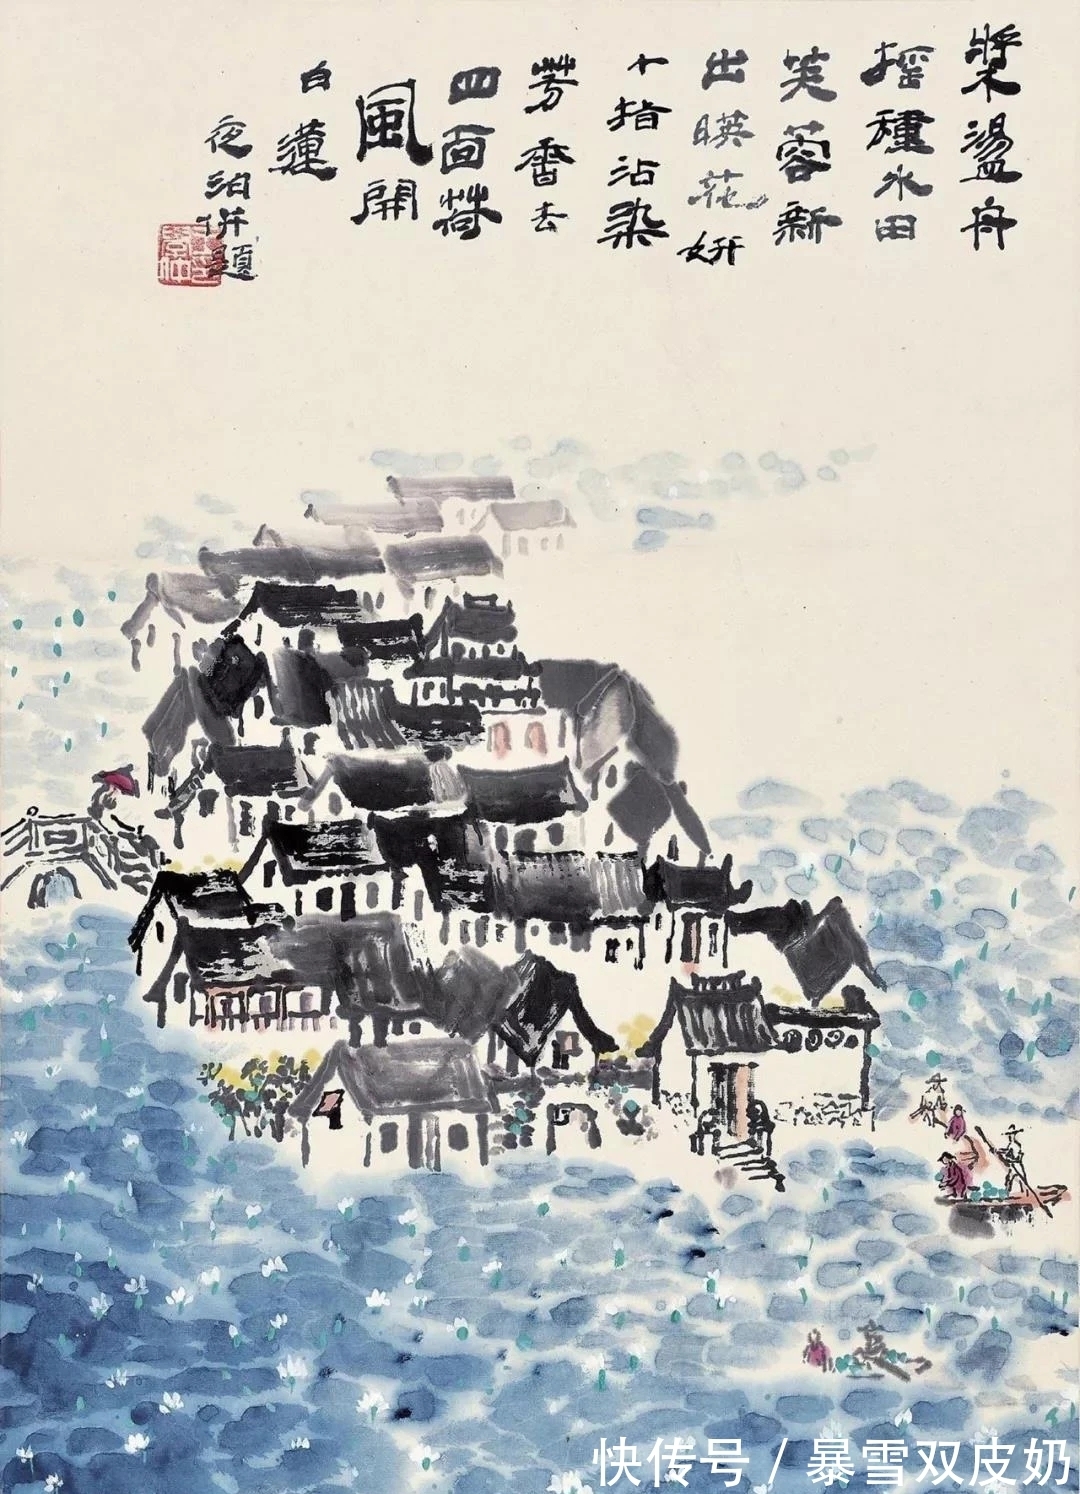 槳盪舟
搖種水田
芙蓉新
出暎花妍
十指沾染
芳香去
四面荷
風開
白蓮
夜泊併題
快传号 / 暴雪双皮奶